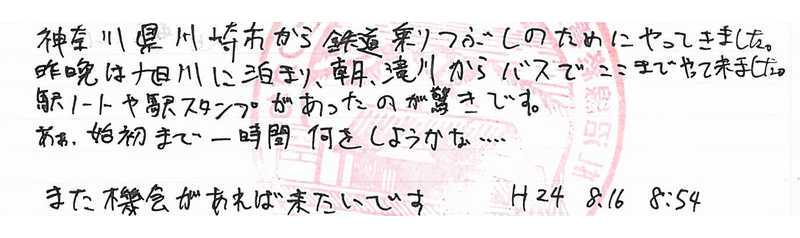 神奈川県川崎市から鉄道乗りつぶしのためにやってきました。
昨晩は旭川に泊まり、朝、滝川からバスでここまでやって来ました。
駅ノートや駅スタンプがあったのが驚きです。
あぁ、始初まで一時間何をしようかな……
また機会があれば来たいです H24 8.16 8:54
札沼線